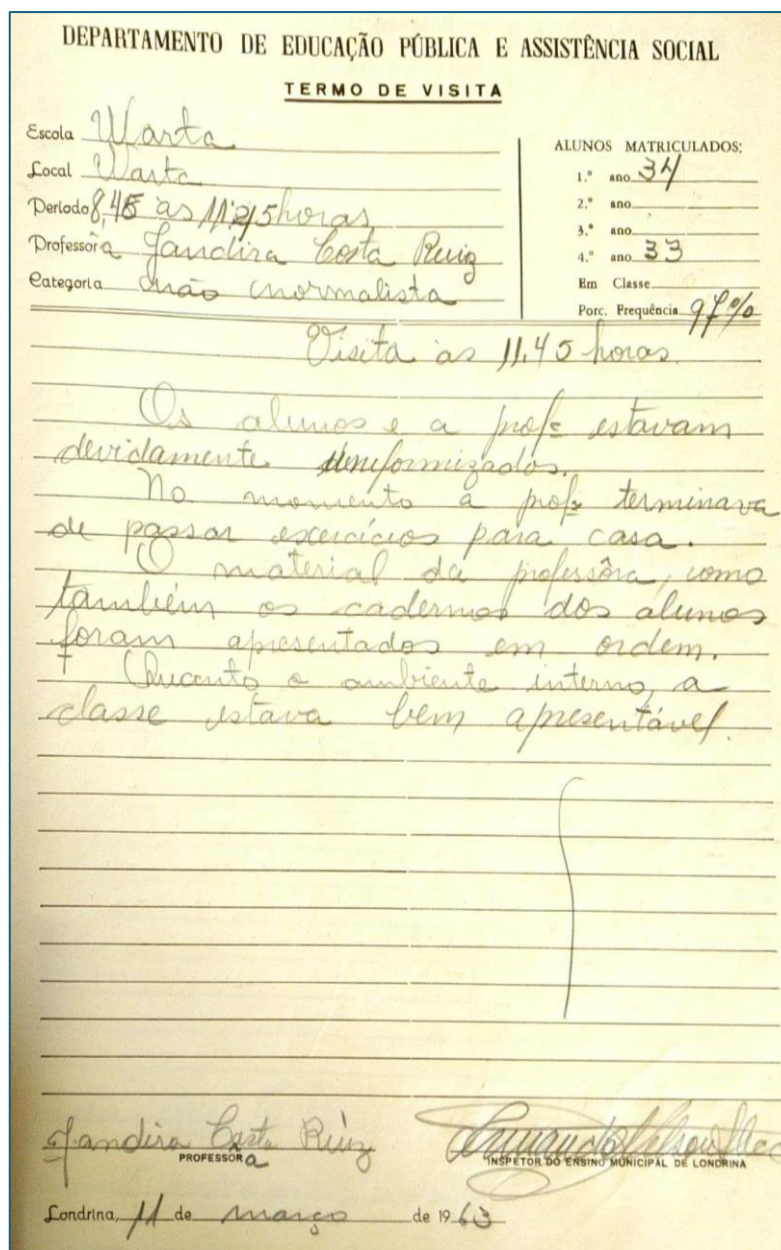 DEPARTAMENTO DE EDUCAÇÃO PÚBLICA E ASSISTÊNCIA SOCIAL
TERMO DE VISITA
Escola Warta
Local Warta
Período 8,45 às 11,45 horas
Professôra Jandira Costa Ruiz
Categoria não normalista
ALUNOS MATRICULADOS:
1.º ano 34
2.º ano
3.º ano
4.º ano 33
Em Classe
Porc. Frequência 97%
Visita às 11.45 horas.
Os alunos e a profª estavam
devidamente uniformizados.
No momento a profª terminava
de passar exercícios para casa.
O material da professôra, como
também os cadernos dos alunos
foram apresentados em ordem.
Quanto o ambiente interno, a
classe estava bem apresentável.
Jandira Costa Ruiz
PROFESSÔRA
INSPETOR DO ENSINO MUNICIPAL DE LONDRINA
Londrina, 11 de março de 1963